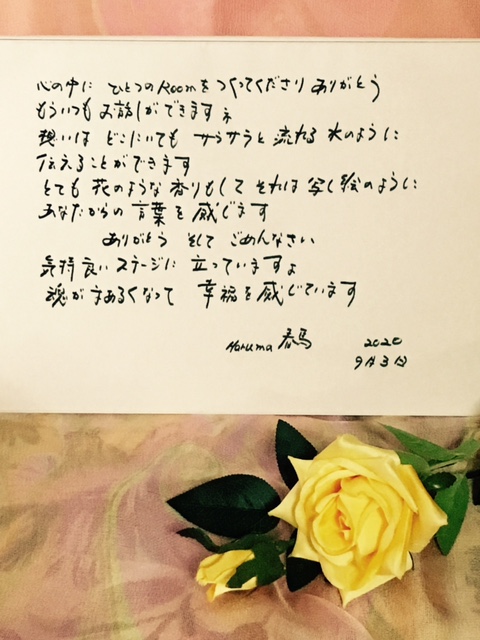 心の中に ひとつのRoomをつくってくださり ありがとう
もういつも お話しができますネ
想いは どこにいても サラサラと 流れる 水のように
伝えることができます
とても 花のような 香りもして それは 写し絵のように
あなたからの 言葉を 感じます
ありがとう そして ごめんなさい
気持良い ステージに 立っていますよ
魂が まあるくなって 幸福を感じています
Haruma 春馬 2020
9月3日